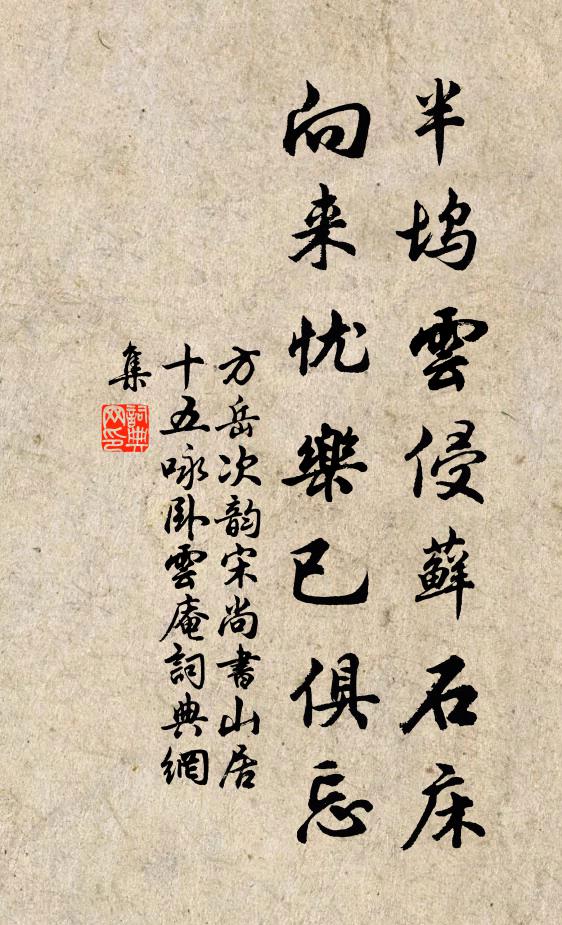 半坞雲侵蘚石床
向来忧樂已俱忘
方岳次韵宋尚書山居
十五咏卧雲庵詞典網
集
詞典网印